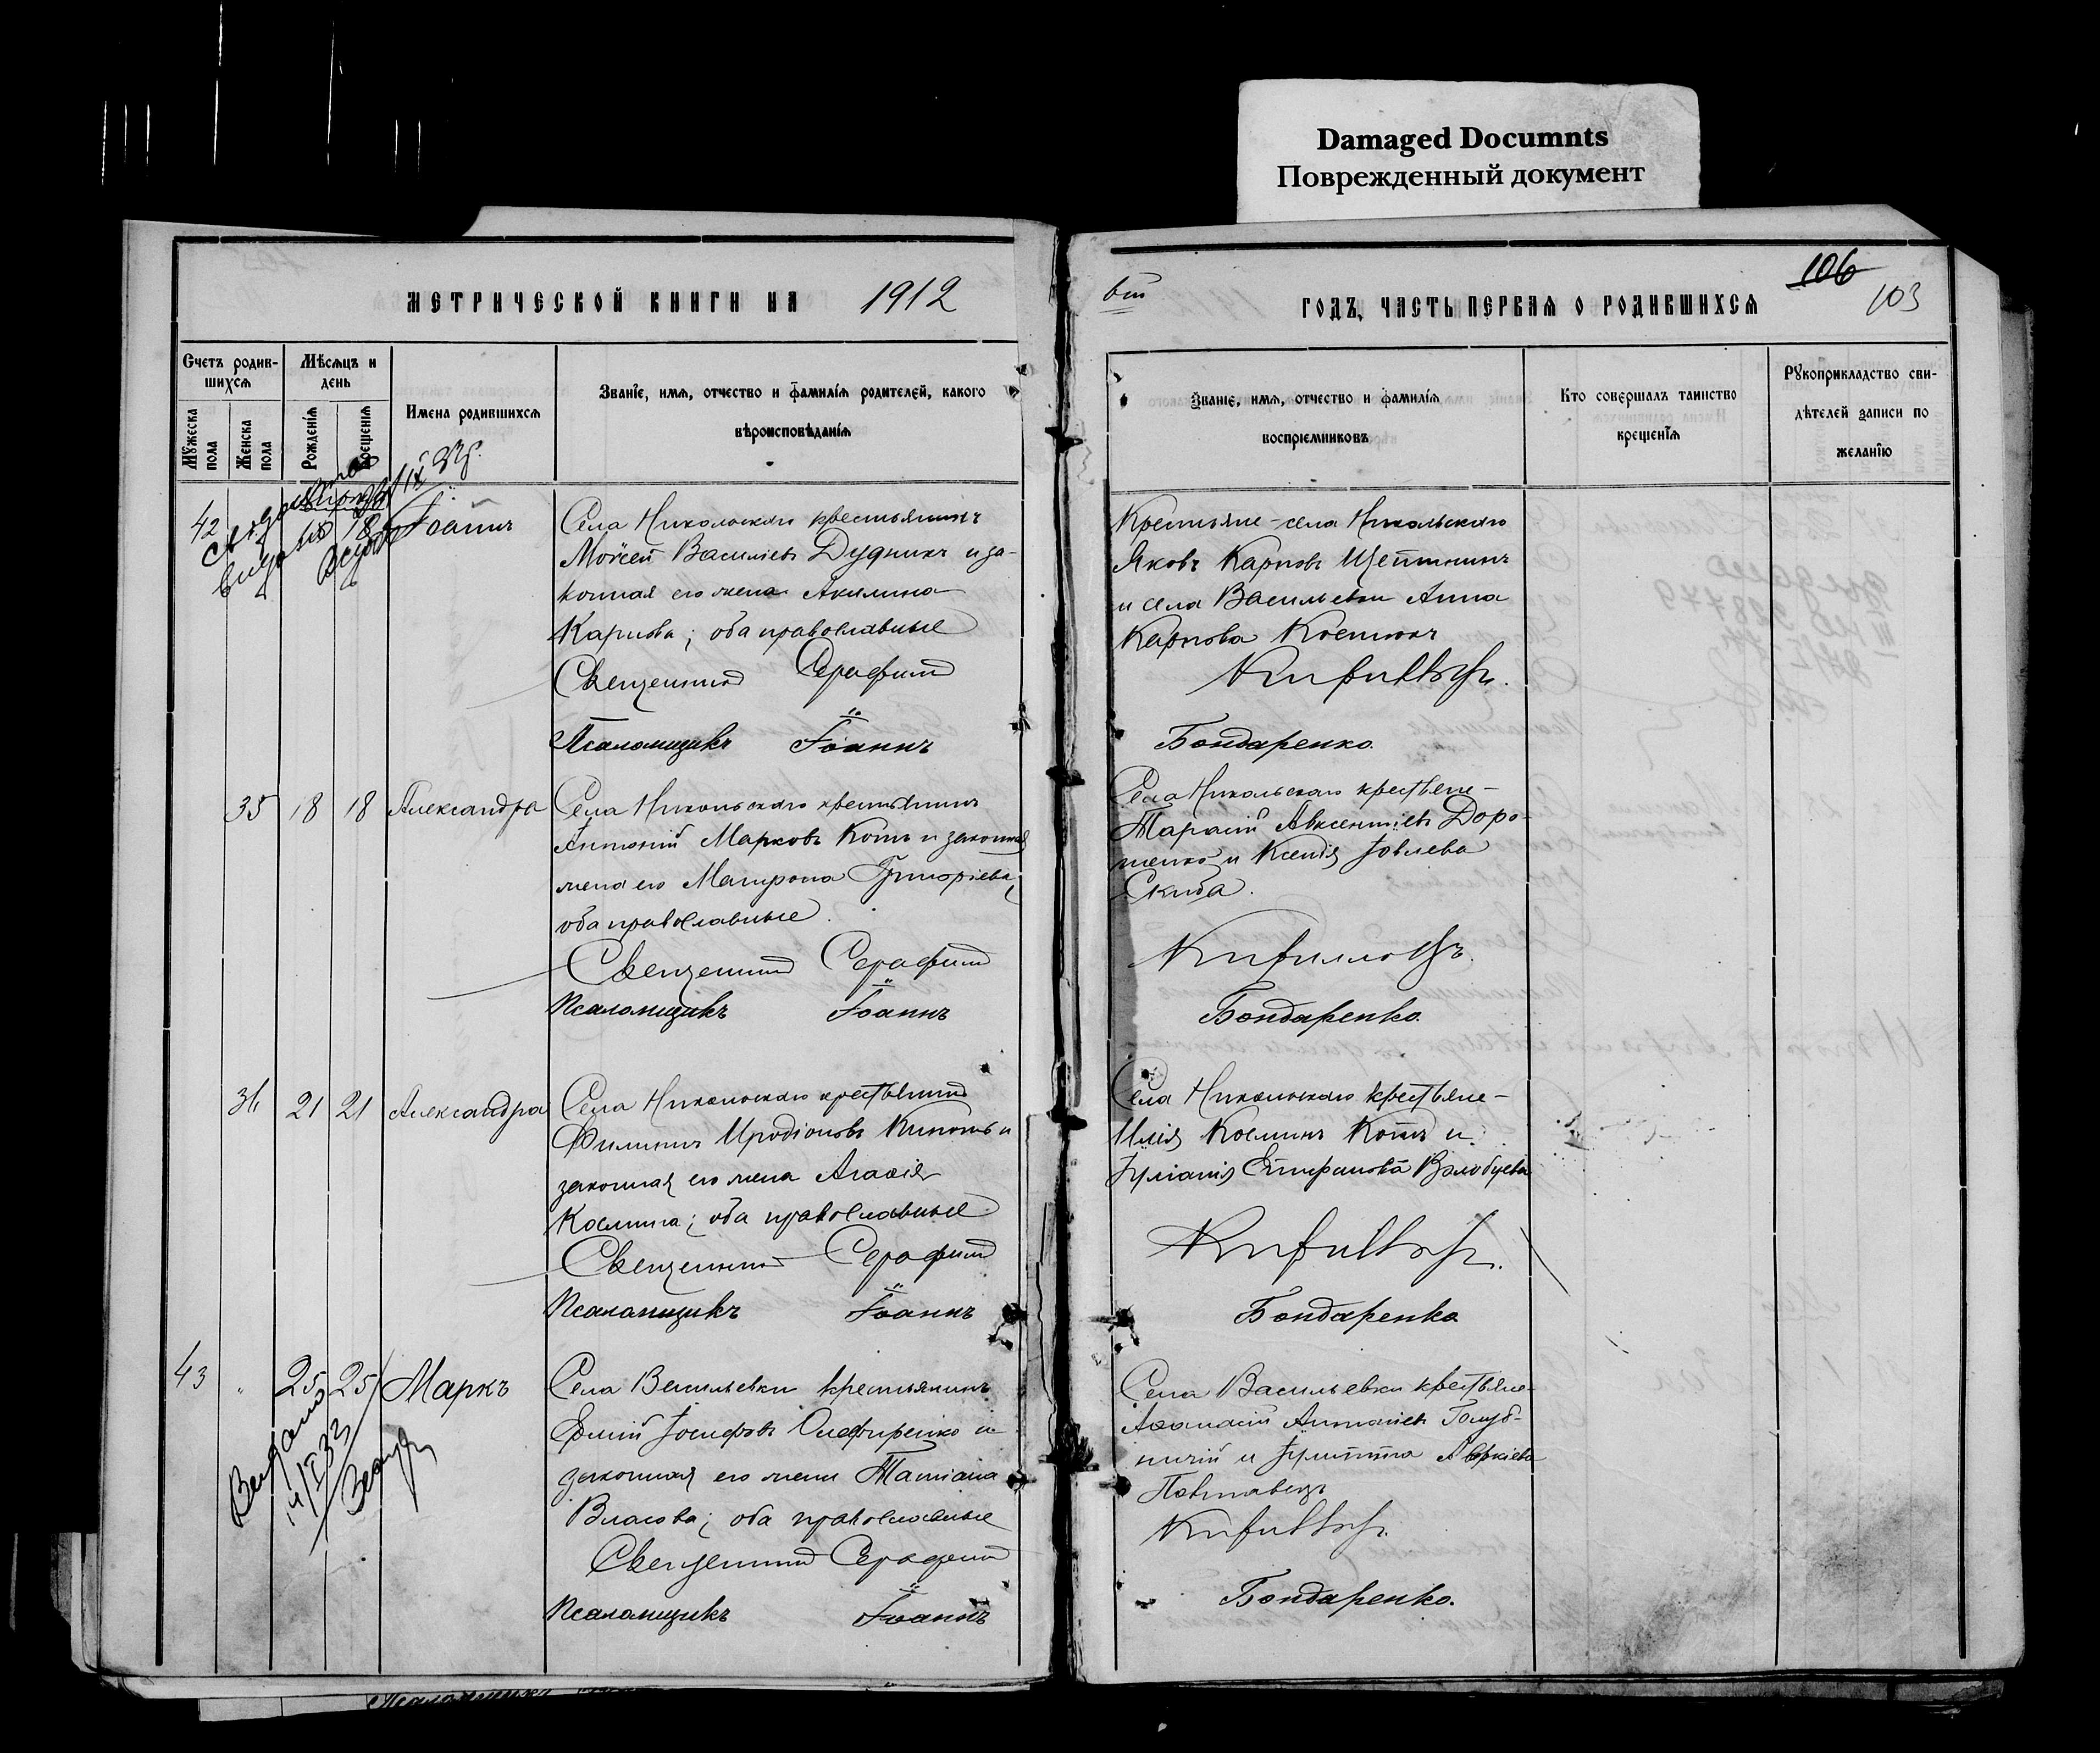 Damaged Documnts
Поврежденный документ
МЕТРИЧЕСКОЙ КНИГИ НА 1912
Счетъ родив-
шихся
Мѣсяцъ и
день
Мужеска
пола
Женска
пола
Рожденія
Крещенія
Имена родившихся
Званіе, имя, отчество и фамилія родителей, какого
вѣроисповѣданія
42
18
Іоаннъ
Села Никольскаго крестьянинъ
Моѵсей Василіевъ Дудникъ и за-
конная его жена Акилина
Карпова; оба православные
Священникъ Серафимъ
Псаломщикъ Іоаннъ
35 18 18 Александра
Села Никольскаго крестьянинъ
Антоній Марковъ Котъ и законная
жена его Матрона Григоріева,
оба православные.
Священникъ Серафимъ
Псаломщикъ Іоаннъ
36 21 21 Александра
Села Никольскаго крестьянинъ
Филиппъ Иродіоновъ и
законная его жена Агаѳія
Космина; оба православные
Священникъ Серафимъ
Псаломщикъ Іоаннъ
43 " 25 25 Маркъ
Выдано
Села Васильевки крестьянинъ
Іосифовъ Олефиренко и
законная его жена Татіана
Власова; оба православные
Священникъ Серафимъ
Псаломщикъ Іоаннъ
106
103
вт
ГОДЪ, ЧАСТЬ ПЕРВАЯ О РОДИВШИХСЯ
Званіе, имя, отчество и фамилія
воспріемниковъ
Кто совершалъ таинство
крещенія
Рукоприкладство сви-
дѣтелей записи по
желанію
Крестьяне - села Никольскаго
Яковъ Карповъ
и села Васильевки Анна
Карпова
Кирилловъ.
Бондаренко.
Села Никольскаго крестьяне -
Тарасій Авксентіевъ Доро-
шенко и Ксенія Іовлева
Скиба.
Кирилловъ.
Бондаренко.
Села Никольскаго крестьяне -
Илія Косминъ Котъ и
Іуліанія
Кирилловъ.
Бондаренко
Села Васильевки крестьяне -
Аѳанасій Антоніевъ Голуб-
ничій и Іулитта Аверкіева
Полтавецъ
Кирилловъ.
Бондаренко.